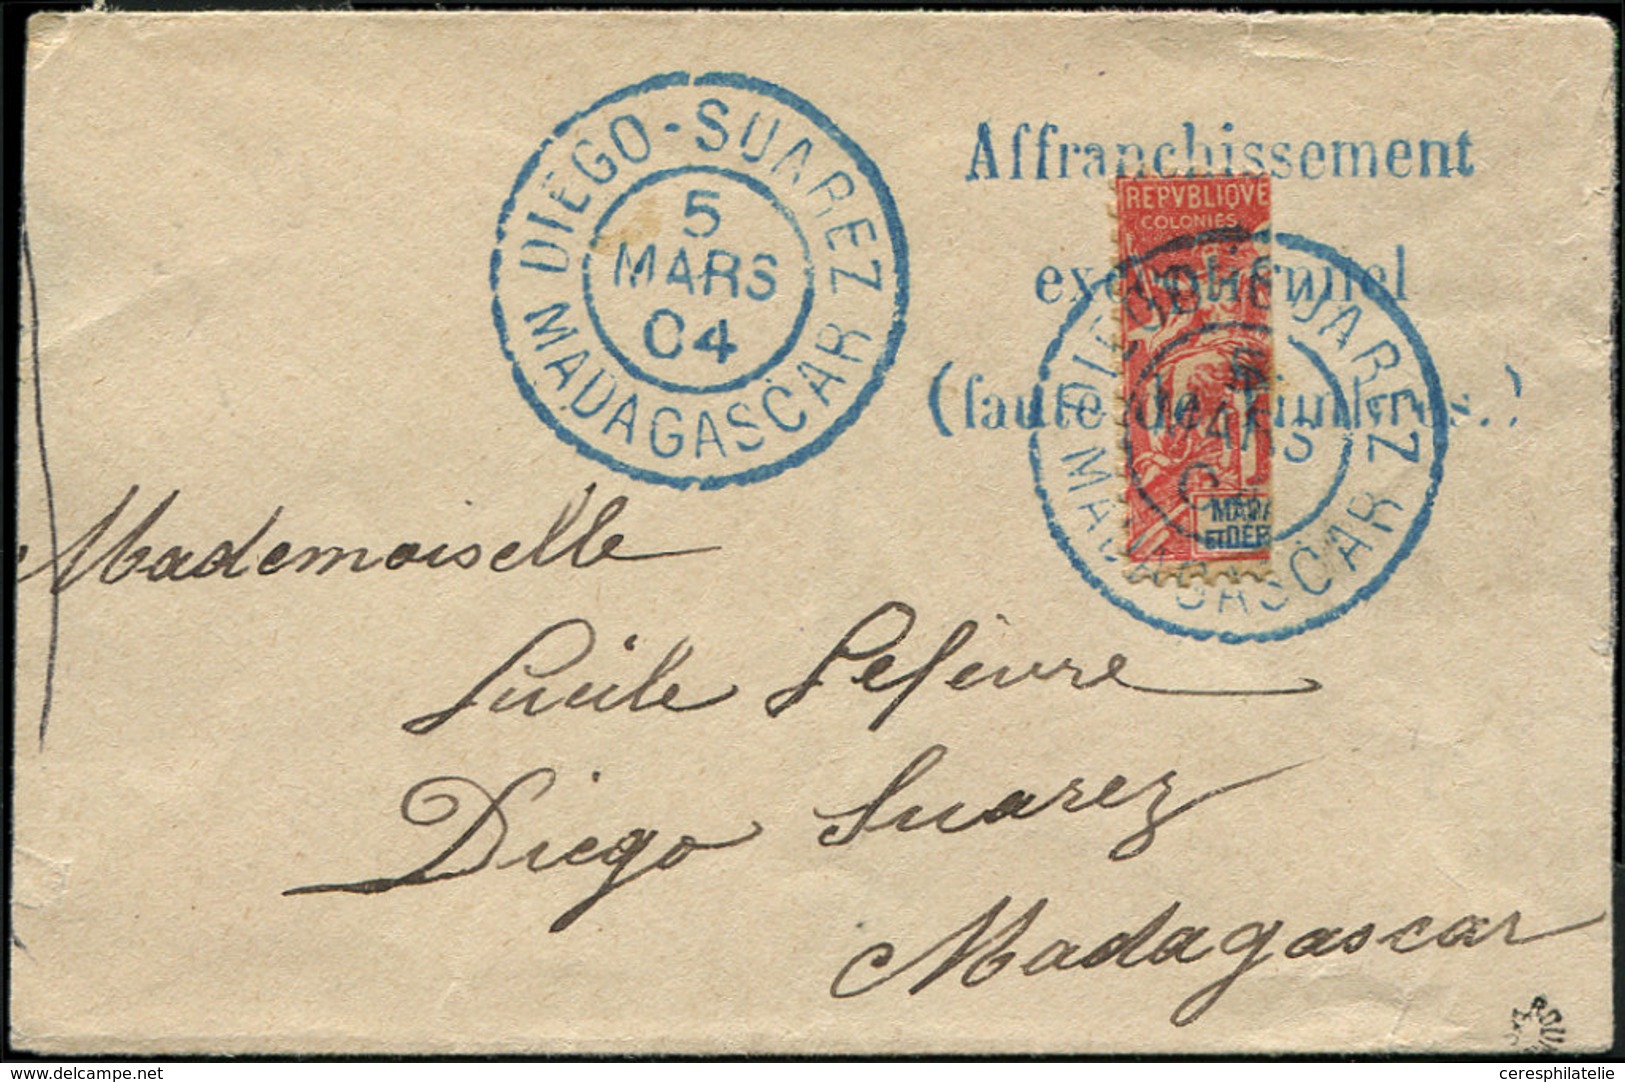 DIEGO-SUAREZ
5
MARS
04
MADAGASCAR
Affranchissement
exceptionnel
(faute de timbres.)
REPVBLIQVE
COLONIES
DIEGO-SUAREZ
5
MARS
MADAGASCAR
MADA
ET DÉP
Mademoiselle
Lucile Lefèvre
Diego Suarez
Madagascar
www.delcampe.net
ceresphilatelie